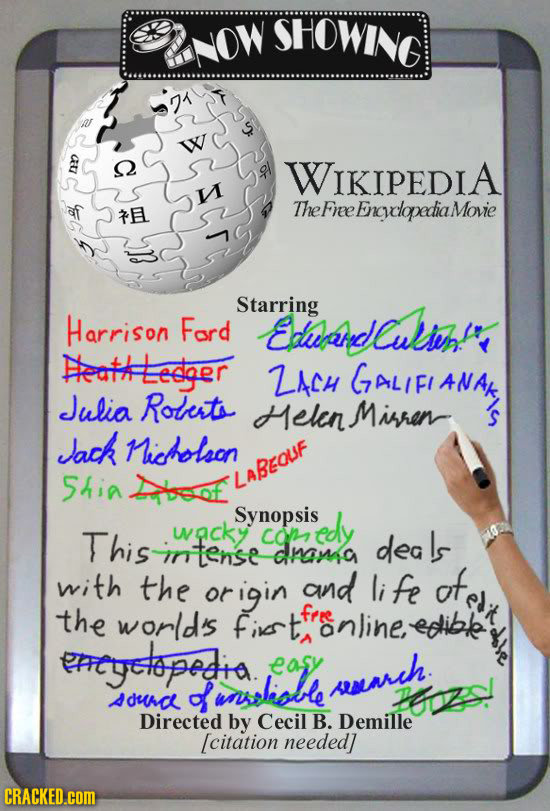 NOW SHOWING
Ω W И
WIKIPEDIA
The Free Encyclopedia Movie
Starring
Harrison Ford Edward Cullen
Heath Ledger ZACH GALIFIANAKIS
Julia Roberts Helen Mirren
Jack Nicholson
Shia Laboof LABEOUF
Synopsis
wacky comedy
This intense drama deals
with the origin and life of
the world's first free online, edible editable
encyclopedia. easy
source of unreliable research.
Directed by Cecil B. Demille
[citation needed]
CRACKED.com